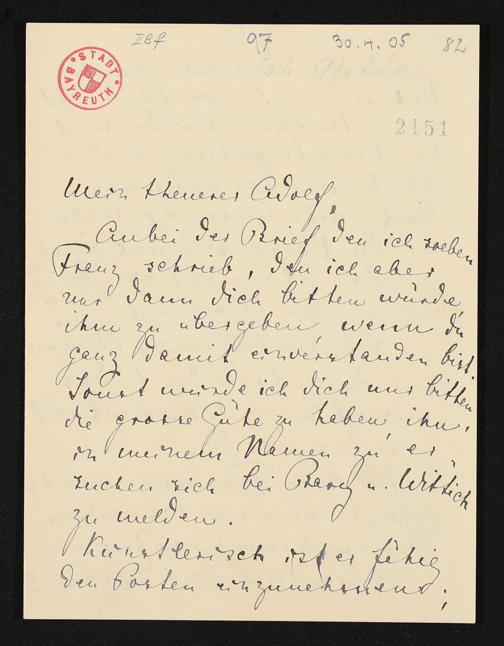 IIBf 97 30.4.05 82
STADT BAYREUTH
2151
Mein theurer Adolf,
Anbei der Brief den ich soeben
Franz schrieb, den ich aber
nur dann dich bitten würde,
ihm zu übergeben wenn du
ganz damit einverstanden bist.
Sonst würde ich dich nur bitten
die grosse Güte zu haben ihn,
in meinem Namen zu er
suchen sich bei u. Wittich
zu melden.
Künstlerisch ist er fähig
den Posten einzunehmen;